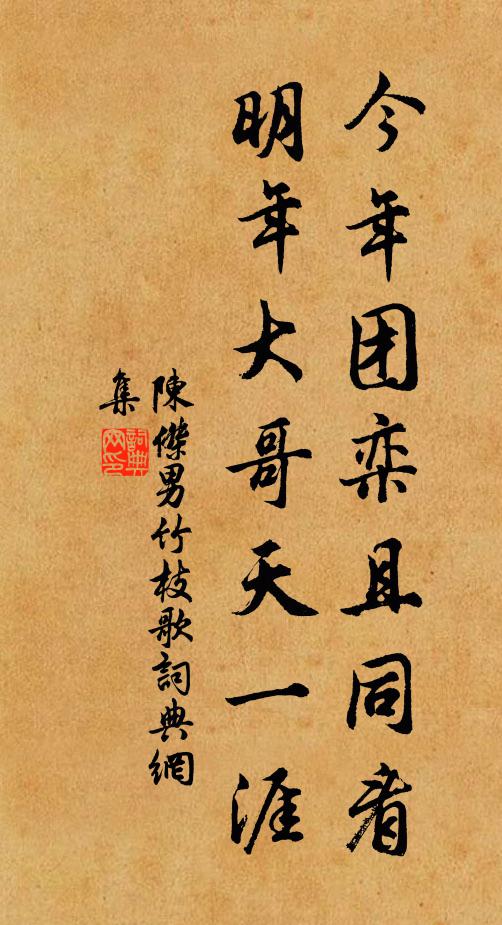 今年团栾且同看
明年大哥天一涯
陳傑男竹枝歌詞典網
集
詞典
网印